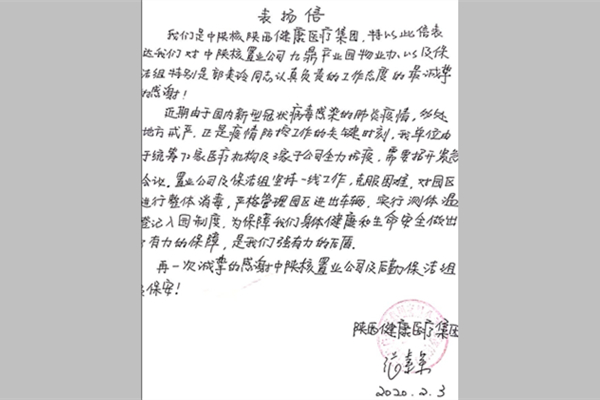 表扬信
我们是中陕核陕西健康医疗集团，特以此信表
达我们对中陕核置业公司九鼎产业园物业办，以及保
洁组特别是郭美玲同志认真负责的工作态度的最诚挚
感谢！
近期由于国内新型冠状病毒感染的肺炎疫情，
地方戒严，正是疫情防控工作的关键时刻，我单位由
于统筹7家医疗机构及3家子公司全力抗疫，需要招开紧急
会议。置业公司及保洁组坚持一线工作，克服困难，对园区
进行整体消毒，严格管理园区进出车辆，实行测体温
登记入园制度，为保障我们身体健康和生命安全做出
有力的保障，是我们强有力的后盾。
再一次诚挚的感谢中陕核置业公司及后勤保洁组
保安！
陕西健康医疗集团
2020.2.3